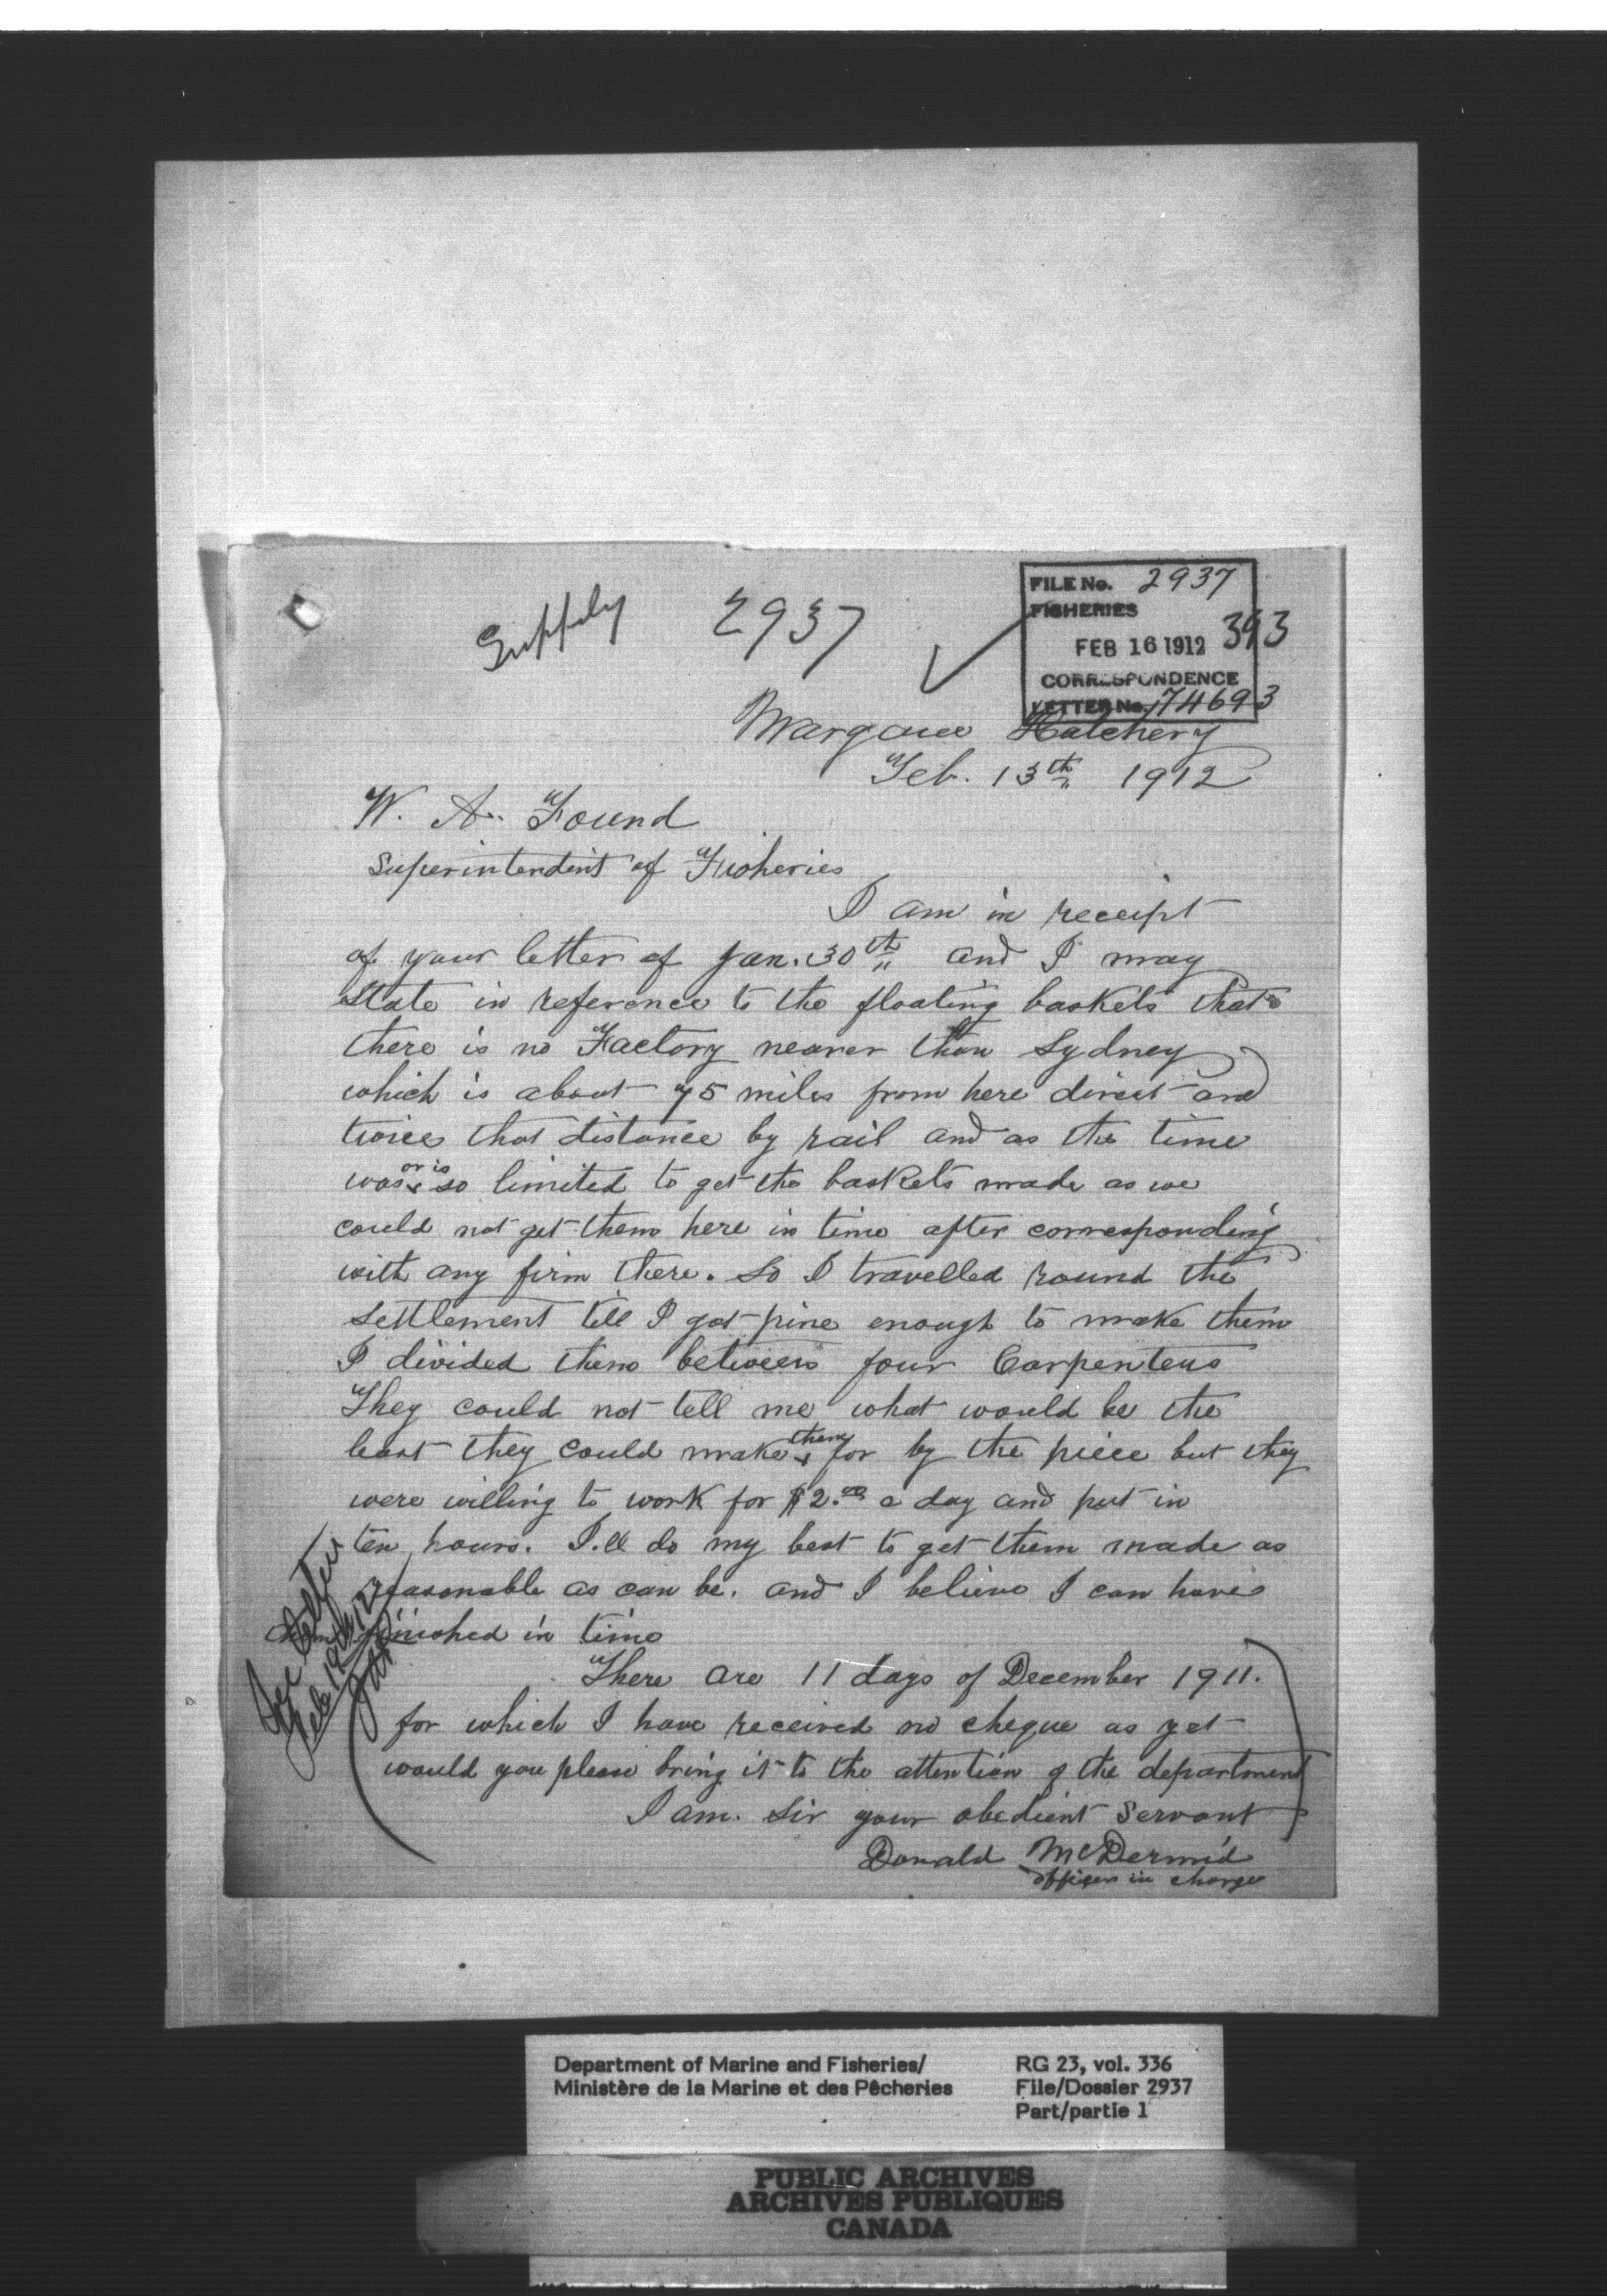 Supply 2937
FILE No. 2937
FISHERIES
393
FEB 16 1912
CORRESPONDENCE
LETTER No. 74693
Margaree Hatchery
Feb. 13th 1912
W. A. Found
Superintendint of Fisheries
I am in receipt
of your letter of Jan. 30th and I may
state in reference to the floating baskets that
there is no Factory nearer than Sydney
which is about 75 miles from here direct and
twice that distance by rail and as the time
was or is so limited to get the baskets made as we
could not get them here in time after corresponding
with any firm there. So I travelled round the
settlement till I got pine enough to make them
I divided them between four Carpenters
They could not tell me what would be the
least they could make them for by the piece but they
were willing to work for $2.00 a day and put in
ten hours. I.ll do my best to get them made as
reasonable as can be. and I believe I can have
them finished in time
There are 11 days of December 1911.
for which I have received no cheque as yet
would you please bring it to the attention of the department
I am. Sir your obedient Servant
Donald McDermid
officer in charge
See letter
Feb 19th 12
Department of Marine and Fisheries/
Ministère de la Marine et des Pêcheries
RG 23, vol. 336
File/Dossier 2937
Part/partie 1
PUBLIC ARCHIVES
ARCHIVES PUBLIQUES
CANADA